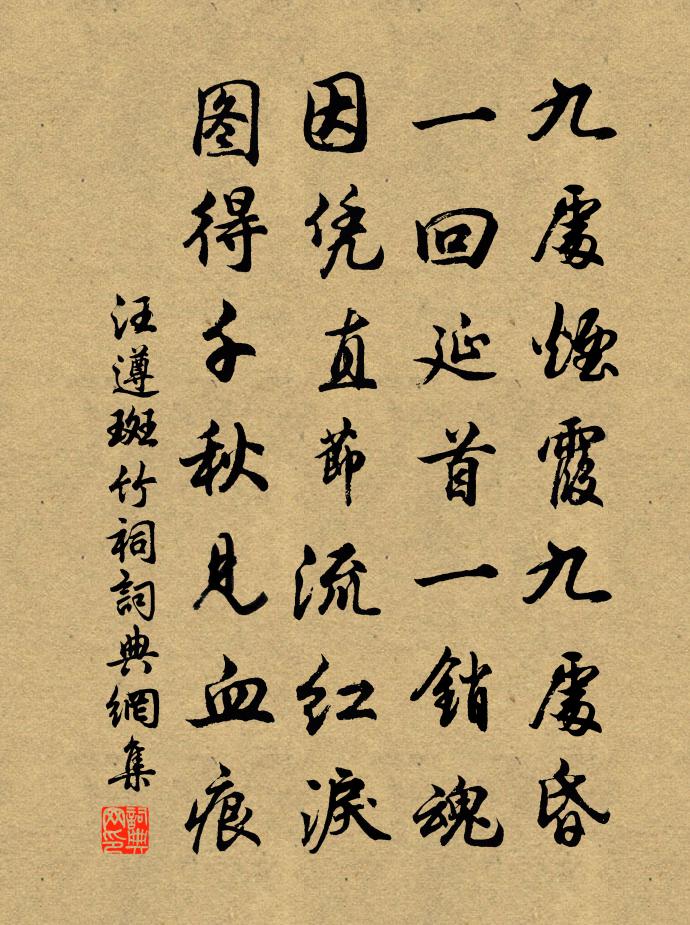 九處煙霞九處昏
一回延首一銷魂
因凭直節流紅淚
图得千秋見血痕
汪遵斑竹祠詞典網集
詞典网印